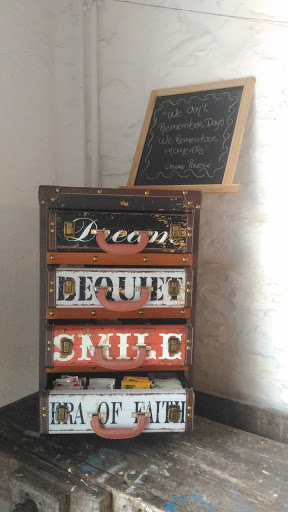 "We don't
Remember Days
We Remember
moments"
Cesare Pavese
Dream
BE QUIET
SMILE
ERA OF FAITH